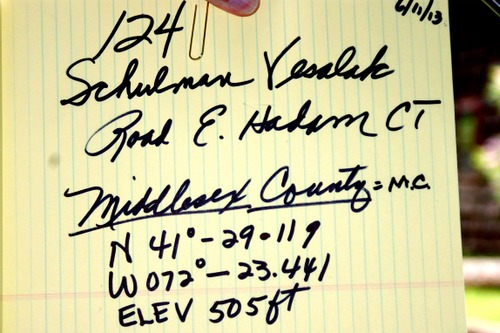 6/11/13
124
Schulman Vesalak
Road E. Hadam CT
Middlesex County = M.C.
N 41° - 29.119
W 072° - 23.441
ELEV 505ft